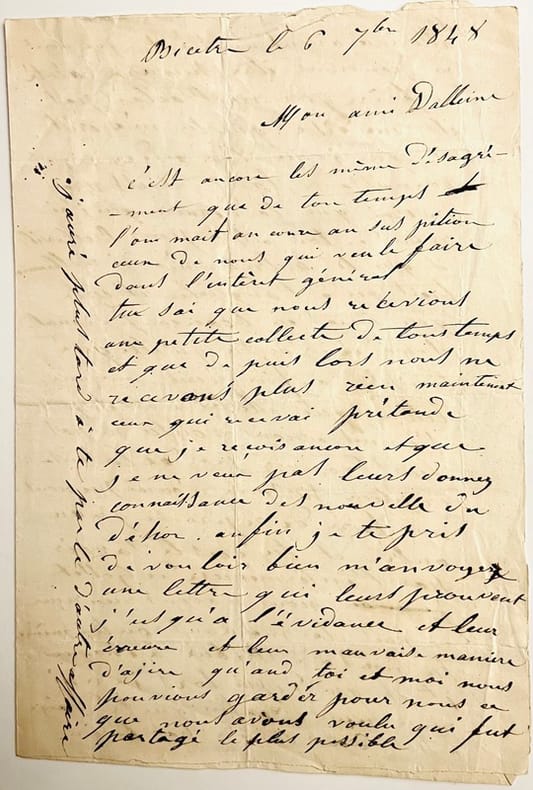 Bicetre le 6 7bre 1848
Mon ami Dalleine
c'est ancore les même désagré-
-ment que de ton temps
l'on mait ancore au sus pition
ceux de nous qui veule faire
dans l'intérêt général
tu sai que nous recevions
une petite collecte de tous temps
et que de puis lors nous ne
recevons plus rien maintenent
ceux qui recevai prétende
que je reçois ancore et que
je ne veux pas leurs donnez
connaissance des nouvelle du
déhor. anfin je te pris
de vouloir bien m'anvoyez
une lettre qui leurs prouvent
j'usqu'a l'évidance et leur
éreure et leur mauvaise maniere
d'ajire qu'and toi et moi nous
pouvions garder pour nous ce
que nous avons voulu qui fut
partagé le plus possible
j'auré plus tard à te parlé d'autre affaire